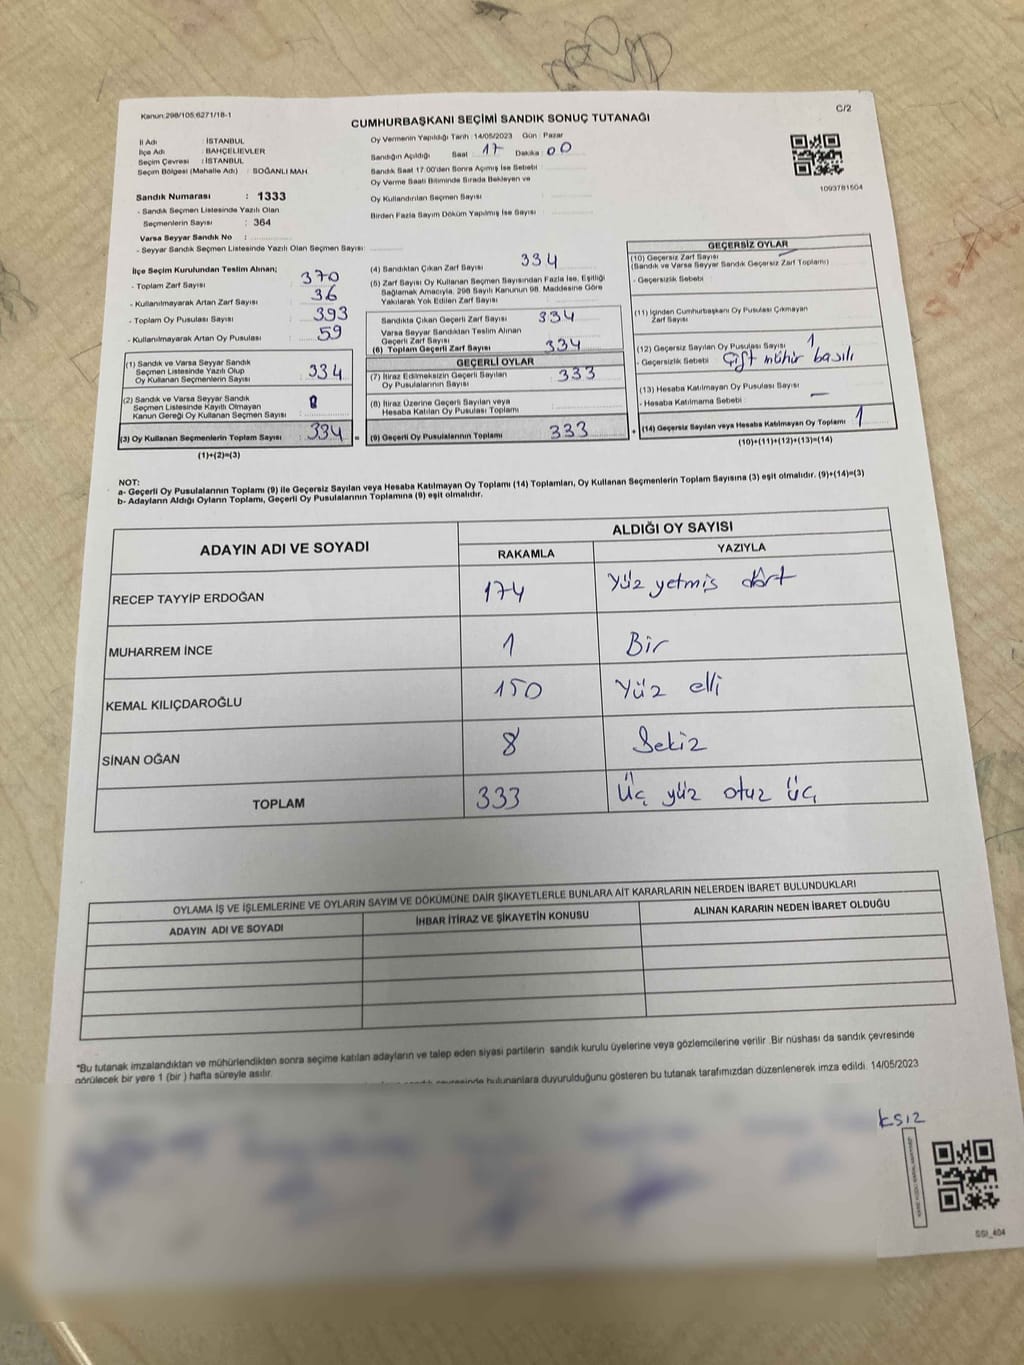 Kanun:298/105;6271/18-1
C/2
CUMHURBAŞKANI SEÇİMİ SANDIK SONUÇ TUTANAĞI
İl Adı : İSTANBUL
İlçe Adı : BAHÇELİEVLER
Seçim Çevresi : İSTANBUL
Seçim Bölgesi (Mahalle Adı) : SOĞANLI MAH.
Sandık Numarası : 1333
- Sandık Seçmen Listesinde Yazılı Olan
Seçmenlerin Sayısı : 364
Varsa Seyyar Sandık No :
- Seyyar Sandık Seçmen Listesinde Yazılı Olan Seçmen Sayısı:
Oy Vermenin Yapıldığı Tarih :14/05/2023 Gün : Pazar
Sandığın Açıldığı Saat : 17 Dakika : 00
Sandık Saat 17:00'den Sonra Açılmış İse Sebebi :
Oy Verme Saati Bitiminde Sırada Bekleyen ve
Oy Kullandırılan Seçmen Sayısı :
Birden Fazla Sayım Döküm Yapılmış İse Sayısı :
1093781504
İlçe Seçim Kurulundan Teslim Alınan;
- Toplam Zarf Sayısı : 370
- Kullanılmayarak Artan Zarf Sayısı : 36
- Toplam Oy Pusulası Sayısı : 393
- Kullanılmayarak Artan Oy Pusulası : 59
(1) Sandık ve Varsa Seyyar Sandık
Seçmen Listesinde Yazılı Olup
Oy Kullanan Seçmenlerin Sayısı : 334
(2) Sandık ve Varsa Seyyar Sandık
Seçmen Listesinde Kayıtlı Olmayan
Kanun Gereği Oy Kullanan Seçmen Sayısı :
(3) Oy Kullanan Seçmenlerin Toplam Sayısı : 334
(1)+(2)=(3)
(4) Sandıktan Çıkan Zarf Sayısı : 334
(5) Zarf Sayısı Oy Kullanan Seçmen Sayısından Fazla İse, Eşitliği
Sağlamak Amacıyla, 298 Sayılı Kanunun 98. Maddesine Göre
Yakılarak Yok Edilen Zarf Sayısı :
Sandıkta Çıkan Geçerli Zarf Sayısı : 334
Varsa Seyyar Sandıktan Teslim Alınan
Geçerli Zarf Sayısı :
(6) Toplam Geçerli Zarf Sayısı : 334
GEÇERLİ OYLAR
(7) İtiraz Edilmeksizin Geçerli Sayılan
Oy Pusulalarının Sayısı : 333
(8) İtiraz Üzerine Geçerli Sayılan veya
Hesaba Katılan Oy Pusulası Toplamı :
(9) Geçerli Oy Pusulalarının Toplamı : 333
GEÇERSİZ OYLAR
(10) Geçersiz Zarf Sayısı :
(Sandık ve Varsa Seyyar Sandık Geçersiz Zarf Toplamı)
- Geçersizlik Sebebi :
(11) İçinden Cumhurbaşkanı Oy Pusulası Çıkmayan
Zarf Sayısı :
(12) Geçersiz Sayılan Oy Pusulası Sayısı : 1
- Geçersizlik Sebebi : Çift mühür basılı
(13) Hesaba Katılmayan Oy Pusulası Sayısı :
- Hesaba Katılmama Sebebi : —
(14) Geçersiz Sayılan veya Hesaba Katılmayan Oy Toplamı : 1
(10)+(11)+(12)+(13)=(14)
NOT:
a- Geçerli Oy Pusulalarının Toplamı (9) ile Geçersiz Sayılan veya Hesaba Katılmayan Oy Toplamı (14) Toplamları, Oy Kullanan Seçmenlerin Toplam Sayısına (3) eşit olmalıdır. (9)+(14)=(3)
b- Adayların Aldığı Oyların Toplamı, Geçerli Oy Pusulalarının Toplamına (9) eşit olmalıdır.
ADAYIN ADI VE SOYADI
ALDIĞI OY SAYISI
RAKAMLA YAZIYLA
RECEP TAYYİP ERDOĞAN 174 Yüz yetmiş dört
MUHARREM İNCE 1 Bir
KEMAL KILIÇDAROĞLU 150 Yüz elli
SİNAN OĞAN 8 Sekiz
TOPLAM 333 Üç yüz otuz üç
OYLAMA İŞ VE İŞLEMLERİNE VE OYLARIN SAYIM VE DÖKÜMÜNE DAİR ŞİKAYETLERLE BUNLARA AİT KARARLARIN NELERDEN İBARET BULUNDUKLARI
ADAYIN ADI VE SOYADI İHBAR İTİRAZ VE ŞİKAYETİN KONUSU ALINAN KARARIN NEDEN İBARET OLDUĞU
*Bu tutanak imzalandıktan ve mühürlendikten sonra seçime katılan adayların ve talep eden siyasi partilerin sandık kurulu üyelerine veya gözlemcilerine verilir .Bir nüshası da sandık çevresinde
görülecek bir yere 1 (bir ) hafta süreyle asılır.
bulunanlara duyurulduğunu gösteren bu tutanak tarafımızdan düzenlenerek imza edildi. 14/05/2023
ksız
SSI_404